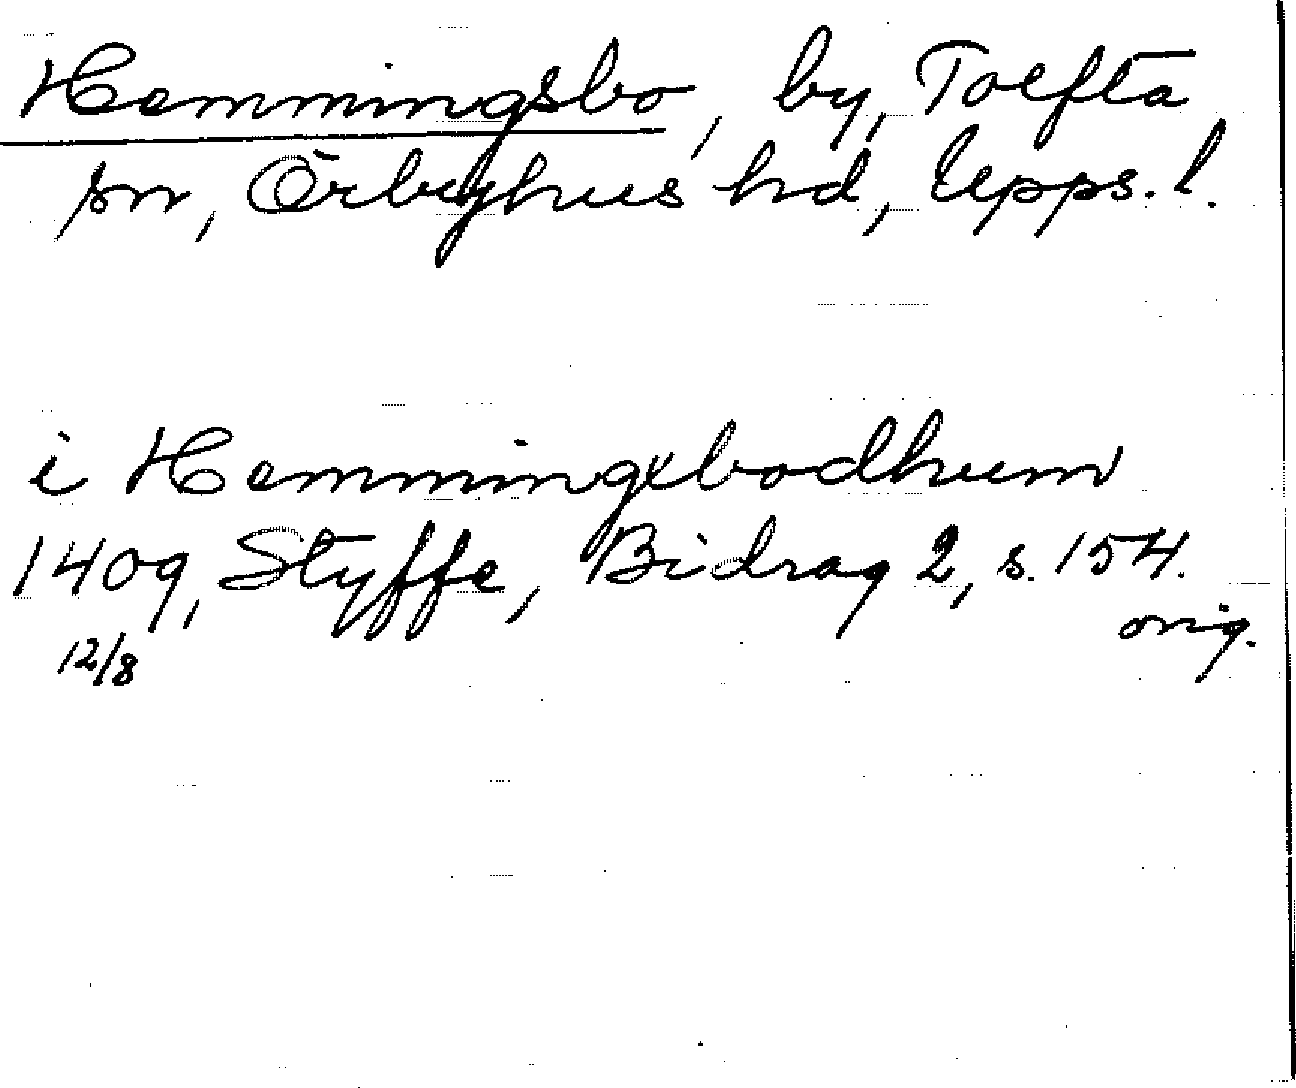 Hemmingsbo, by, Tolfta
sn, Örbyhus hd, Upps. l.
i Hemmingxbodhum
1409, Styffe, Bidrag 2, s. 154.
12/8 orig.